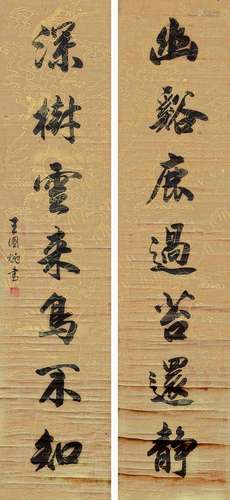 幽谿鹿過苔還静
深樹雲来鳥不知
王國炳書